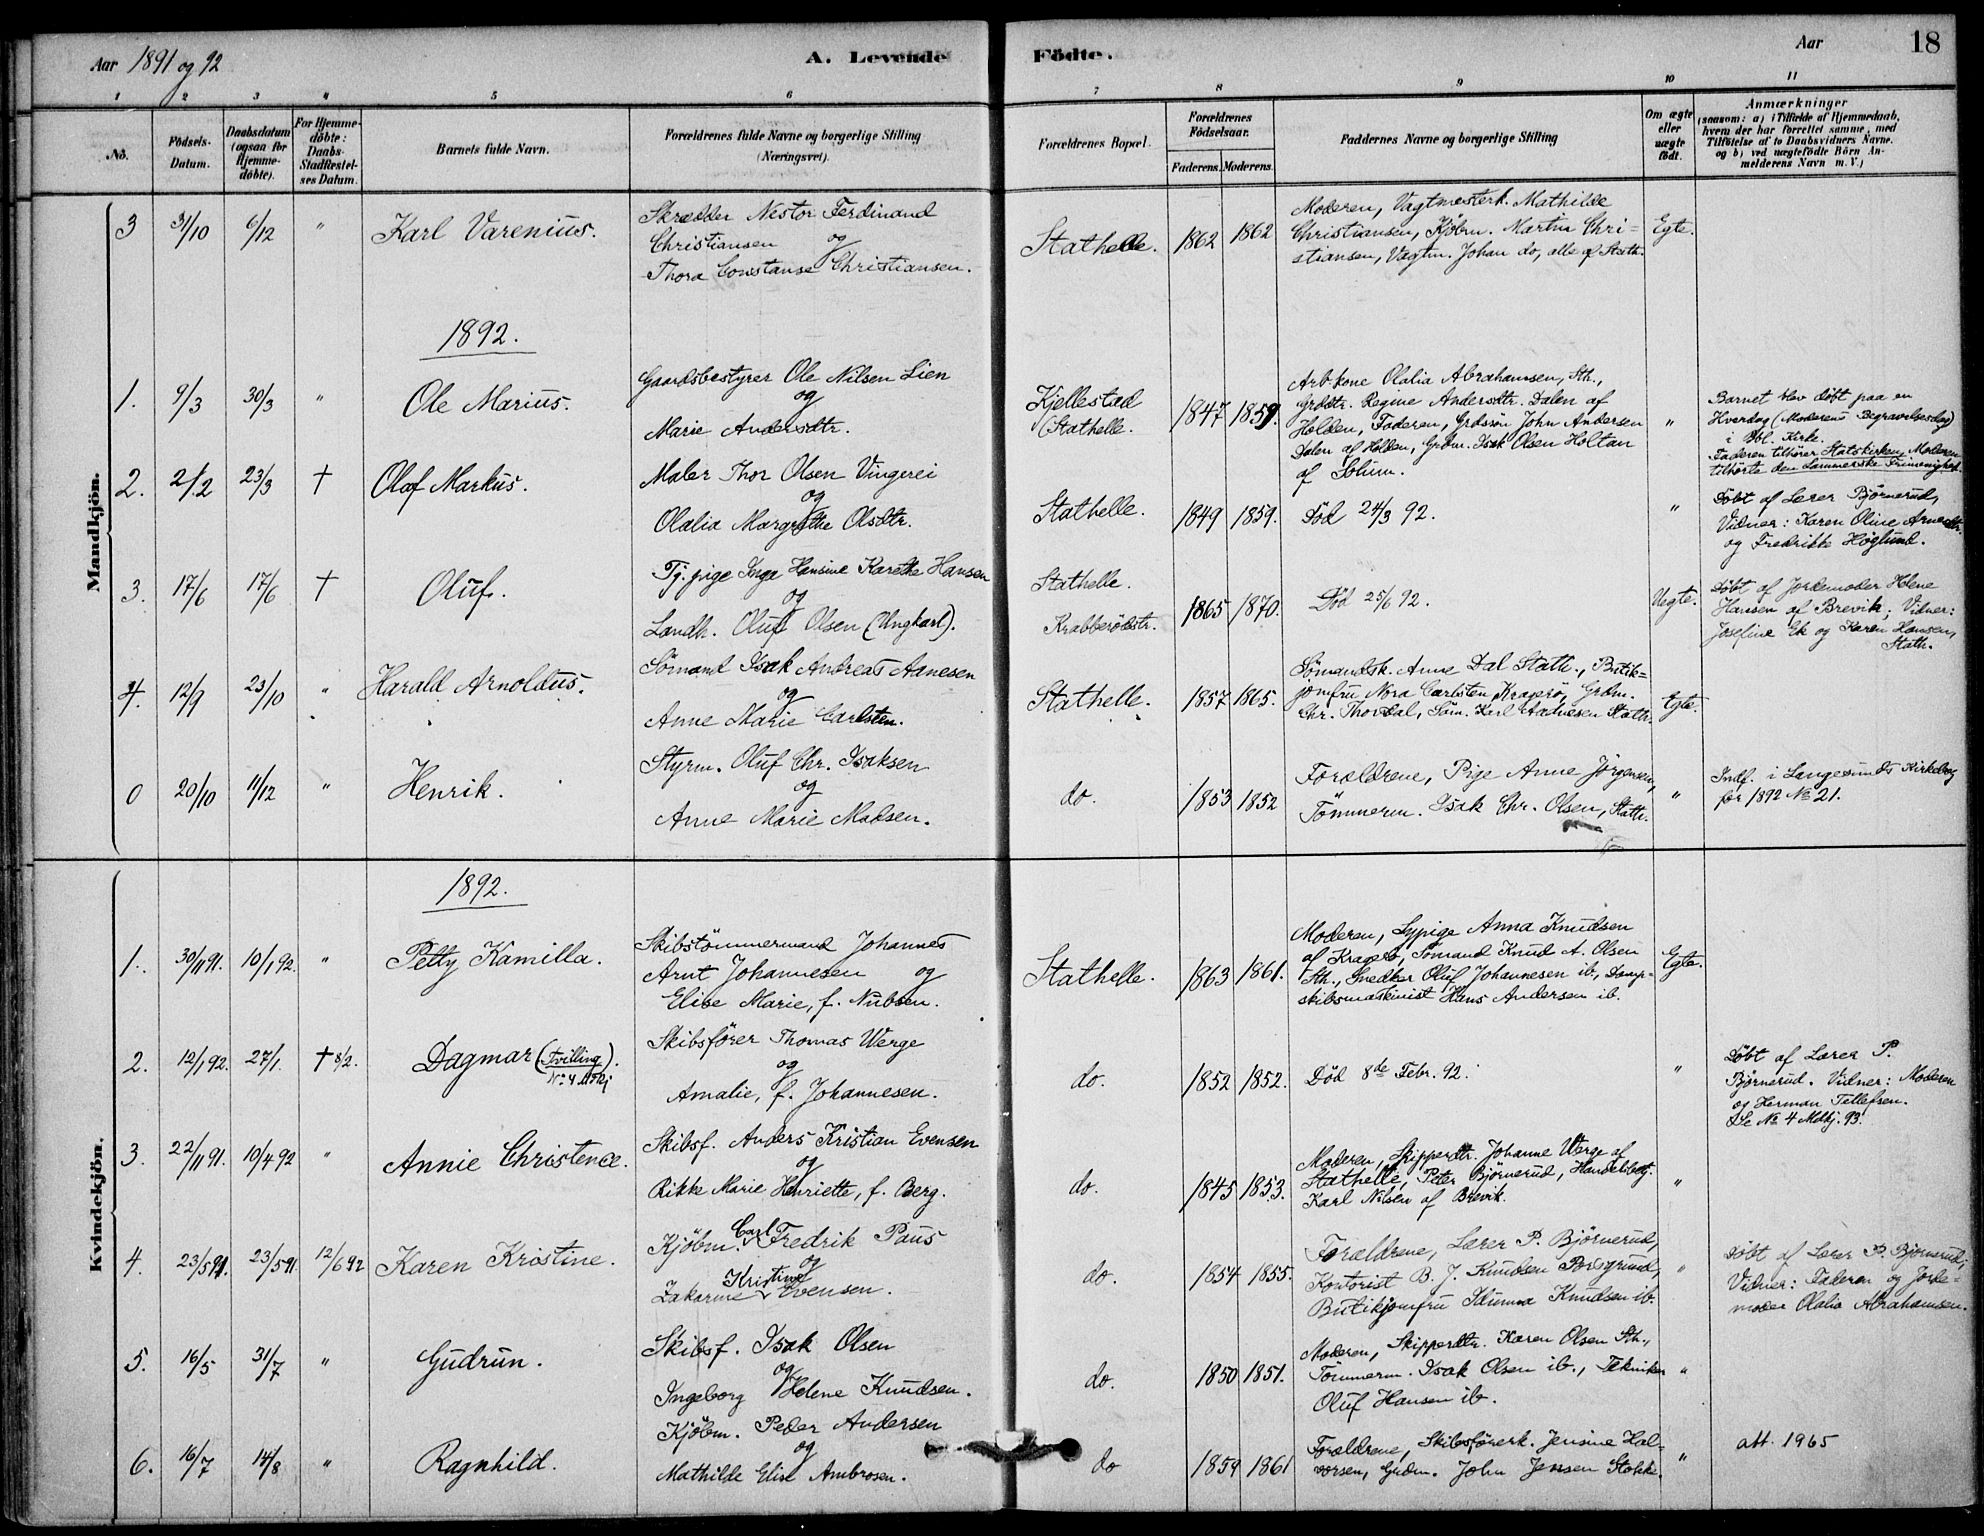 Aar 1891 og 92
A. Levende Födte.
Aar
18
1 2 3 4 5 6 7 8 9 10 11
No.
Födsels-
Datum.
Daabsdatum
(ogsaa for
Hjemme-
döbte).
For Hjemme-
döbte:
Daabs-
Stadfæstel-
ses Datum.
Barnets fulde Navn.
Forældrenes fulde Navne og borgerlige Stilling
(Næringsvei).
Forældrenes Bopæl.
Forældrenes
Födselsaar.
Faderens. Moderens.
Faddernes Navne og borgerlige Stilling
Om ægte
eller
uægte
födt.
Anmærkninger
(saasom: a) i Tilfælde af Hjemmedaab,
hvem der har forrettet samme, med
Tilföielse af to Daabsvidners Navne.
og b) ved uægtefödte Börn An-
melderens Navn m. V.)
Mandkjön.
3 31/10 6/12 " Karl Varenius.
Skrædder Nestor Ferdinand
Christiansen og
Thora Constanse Christiansen.
Stathelle. 1862 1862
Moderen, Vagtmesterk. Mathilde
Christiansen, Kjöbm. Martin Chri=
stiansen, Vagtm. Johan do, alle af Stath.
Egte.
1892.
1. 9/3 30/3 " Ole Marius.
Gaardsbestyrer Ole Nilsen Lien
og
Marie Andersdtr.
Kjellestad
Stathelle.
1847 1859.
Arb.kone Olalia Abrahamsen, Sth.,
Grdtr. Regine Andersdtr. Dalen af
Holden, Faderen, Grdssön John Andersen
Dalen af Holden, Grdm. Isak Olsen Holtan
af Solum.
"
Barnet blev döbt paa en
Hverdag (Moderens Begravelsesdag)
i Bbl. Kirke.
Faderen tilhörer Statskirken, Moderen
tilhörte den Lammerske Frimenighed.
2. 2/2 23/3 † Olaf Markus.
Maler Thor Olsen Vingerei
og
Olalia Margrethe Olsdtr.
Stathelle. 1849 1859. Död 24/3 92. "
Döbt af Lærer Björnerud,
Vidner: Karen Oline Arnesdtr.
og Fredrikke Höglund.
3. 17/6 17/6 † Oluf.
Tj.pige Inga Hansine Karethe Hansen
og
Landh. Oluf Olsen (Ungkarl).
Stathelle.
Krabberödstr.
1865 1870. Död 25/6 92. Uegte.
Döbt af Jordemoder Helene
Hansen af Brevik; Vidner:
Josefine Ek og Karen Hansen,
Stath.
4. 12/9 23/10 " Harald Arnoldus.
Sömand Isak Andreas Aanesen
og
Anne Marie Carlsten.
Stathelle. 1857 1865.
Sömandsk. Anne Dal Stath., Butik=
jomfru Nora Carlsten Kragerö, Grdm.
Chr. Thordal, Söm. Karl Aadnesen Stath.
Egte.
0 20/10 11/12 " Henrik.
Styrm. Oluf Chr. Isaksen
og
Anne Marie Madsen.
do. 1853 1852
Forældrene, Pige Anne Jörgensen,
Tömmerm. Isak Chr. Olsen, Stath.
"
Indf. i Langesunds Kirkebog
for 1892 No 21.
Kvindekjön.
1892.
1. 30/11 91. 10/1 92. " Petty Kamilla.
Skibstömmermand Johannes
Arnt Johannesen og
Elise Marie, f. Nubsen.
Stathelle. 1863 1861.
Moderen, Sypige Anna Knudsen
af Kragerö, Sömand Knud A. Olsen
Sth., Snedker Oluf Johannesen ib., Damp=
skibsmaskinist Hans Andersen ib.
Egte.
2. 12/1 92. 27/1. † 8/2. Dagmar (Tvilling).
No 4 Mdkj
Skibsförer Thomas Werge
og
Amalie, f. Johannesen.
do. 1852 1852. Död 8de Febr. 92. "
Döbt af Lærer P.
Björnerud. Vidner: Moderen
og Herman Tellefsen.
Se No 4 Mdkj. 93.
3. 22/11 91. 10/4 92 " Annie Christence.
Skibsf. Anders Kristian Evensen
og
Rikke Marie Henriette, f. Berg.
do. 1845 1853.
Moderen, Skipperdtr. Johanne Werge af
Stathelle, Peter Björnerud, Handelsbetj.
Karl Nilsen af Brevik.
"
4. 23/5 91. 23/5 91. 12/6 92 Karen Kristine.
Kjöbm. Carl Fredrik Paus
og
Zakarine Kristine Evensen.
do. 1854 1855.
Forældrene, Lærer P. Björnerud,
Kontorist B. J. Knudsen Porsgrund,
Butikjomfru Idunna Knudsen ib.
"
Döbt af Lærer P. Björnerud;
Vidner: Faderen og Jorde=
moder Olalia Abrahamsen.
5. 16/5 31/7 " Gudrun.
Skibsf. Isak Olsen
og
Ingeborg Helene Knudsen.
do. 1850 1851.
Moderen, Skipperdtr. Karen Olsen Sth.,
Tömmerm. Isak Olsen ib., Tekniker
Oluf Hansen ib.
"
6. 16/7 14/8 " Ragnhild.
Kjöbm. Peder Andersen
og
Mathilde Elise Ambrosen.
do 1859 1861
Forældrene, Skibsförerk. Jensine Hal=
vorsen, Grdm. John Jensen Stokke.
"
att. 1965